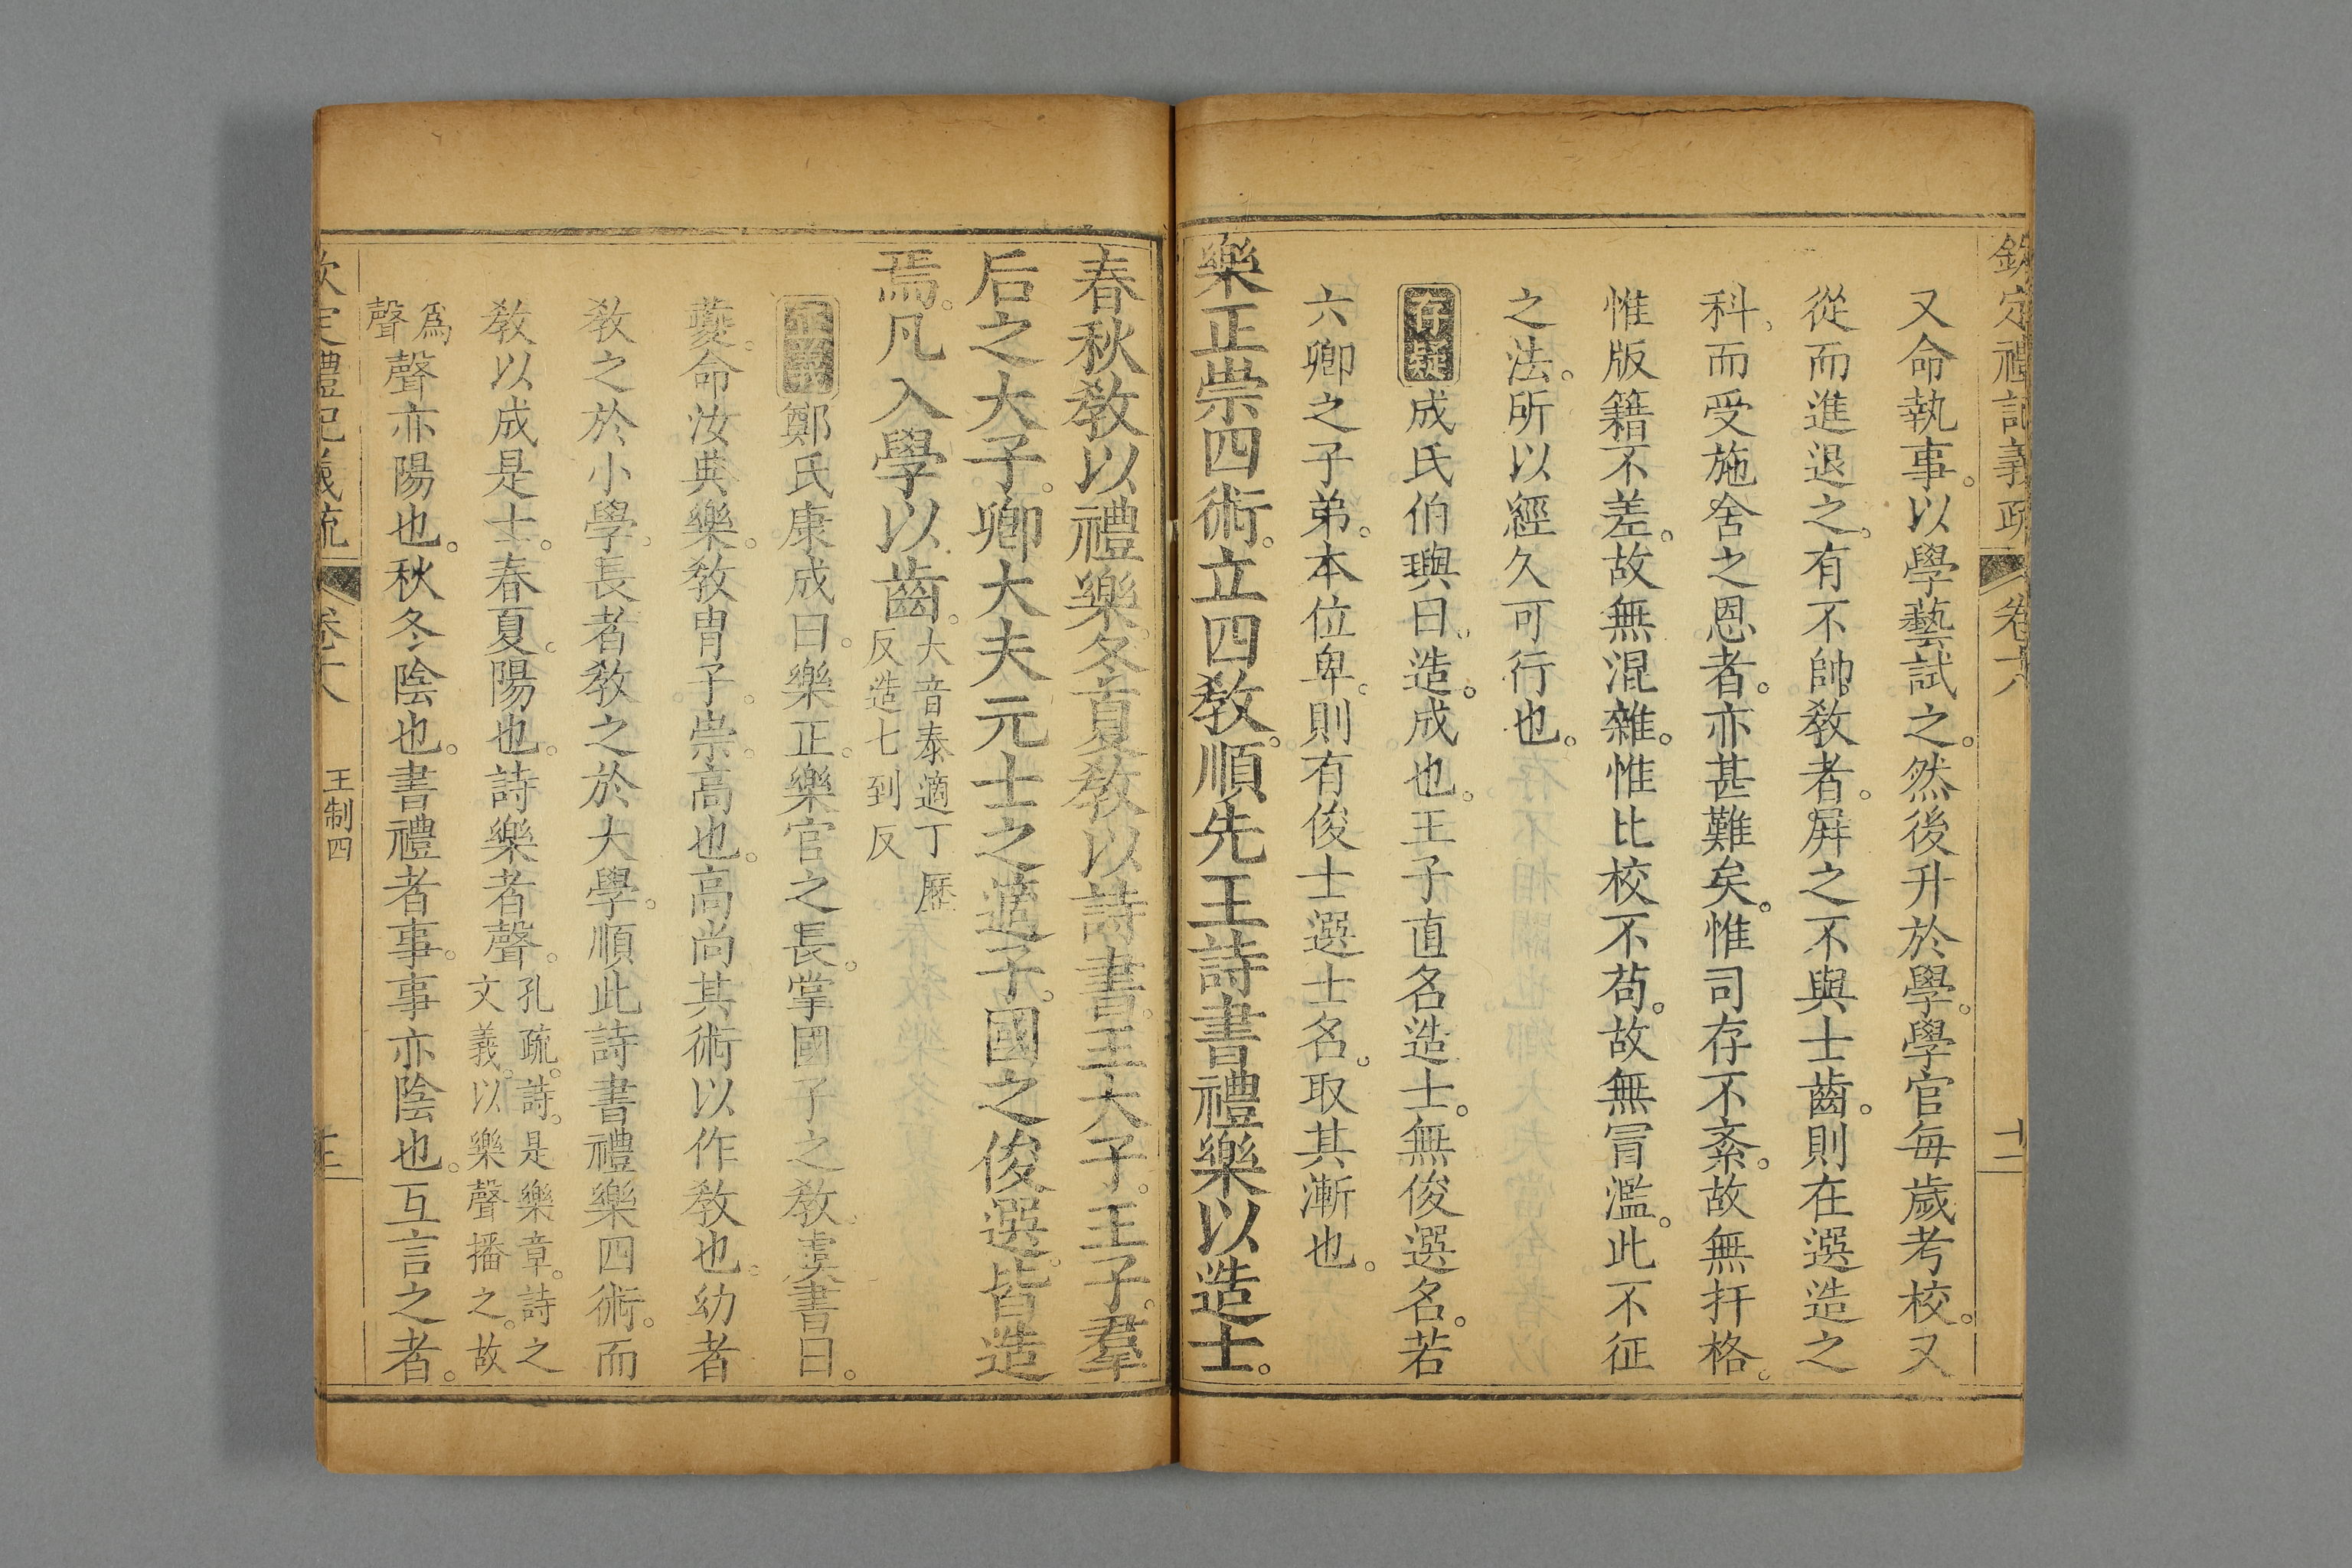 欽定禮記義疏 卷十八 十二
又命執事。以學藝試之。然後升於學。學官每歲考校。又
從而進退之。有不帥教者。屏之不與士齒。則在選造之
科。而受施舍之恩者。亦甚難矣。惟司存不紊。故無扞格。
惟版籍不差。故無混雜。惟比校不苟。故無冐濫。此不征
之法。所以經久可行也。
存疑 成氏伯璵曰。造。成也。王子直名造士。無俊選名。若
六卿之子弟。本位卑。則有俊士選士名。取其漸也。
樂正崇四術。立四教。順先王詩書禮樂以造士。
春秋教以禮樂。冬夏教以詩書。王大子。王子。羣
后之大子。卿大夫元士之適子。國之俊選。皆造
焉。凡入學以齒。大音泰適丁歷反造七到反
正義 鄭氏康成曰。樂正。樂官之長。掌國子之教。虞書曰。
夔。命汝典樂。教冑子。崇。高也。高尚其術以作教也。幼者
教之於小學。長者教之於大學。順此詩書禮樂四術。而
教以成是士。春夏。陽也。詩樂者聲。孔疏。詩。是樂章。詩之文義。以樂聲播之。故
爲聲聲亦陽也。秋冬陰也。書禮者事。事亦陰也。互言之者。
欽定禮記義疏 卷十八 王制四